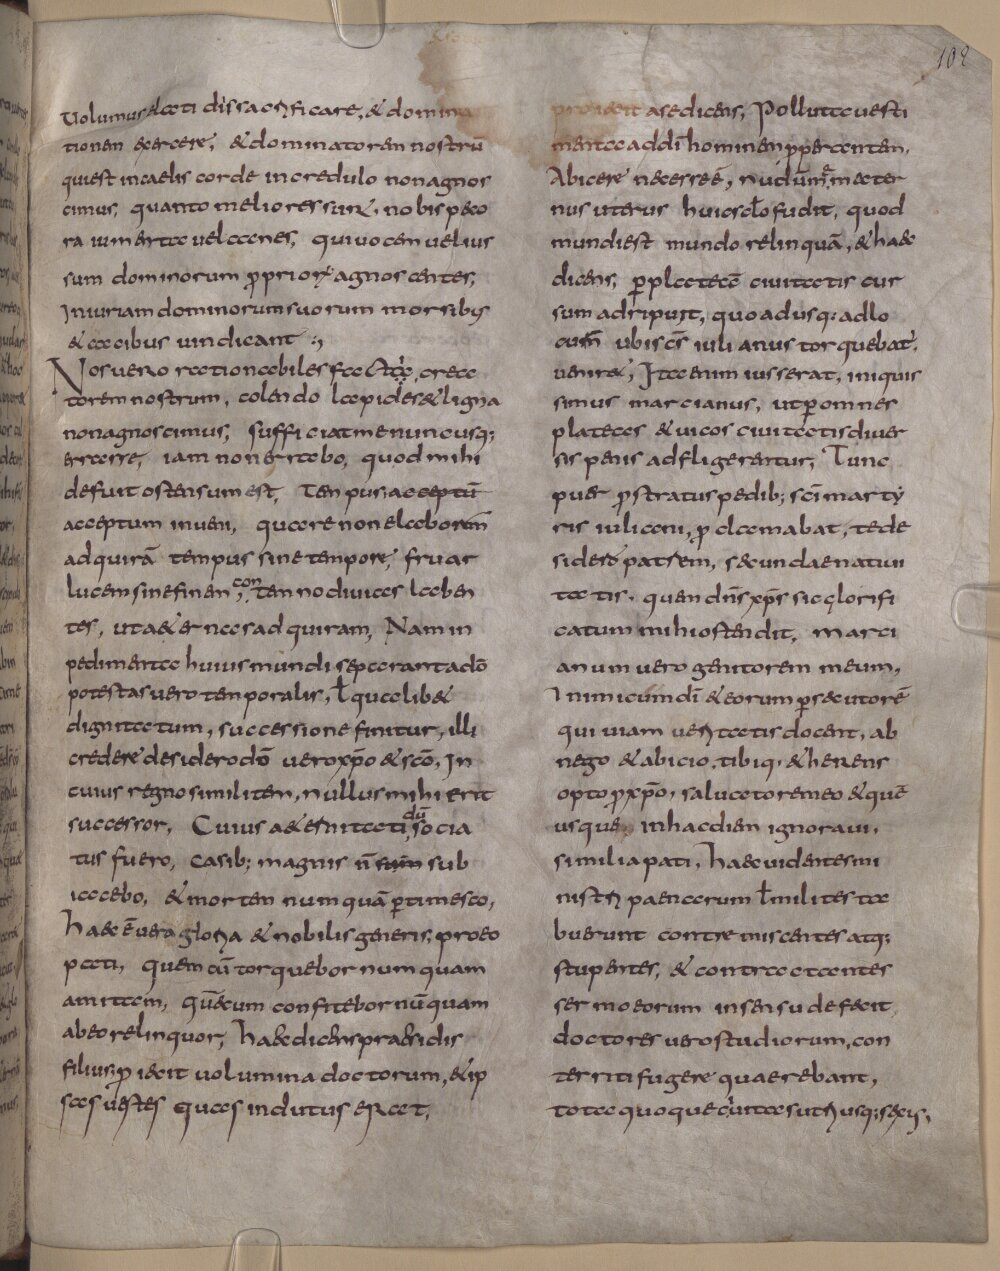 102
uolumus & coeti dissacrificare, & domina
tionem exercere, & dominatorem nostrū
qui est in caelis corde incredulo non agnos
cimus, quanto meliores sunt nobis peco
ra iumenta uel canes, qui uocem uelius
sum dominorum propriorum agnoscentes,
Iniuriam dominorum suorum morsibus
& uocibus uindicant ;
Nos uero rationabiles facti creato
torem nostrum, colendo lapides & ligna
non agnoscimus, sufficiat me nuncusq;
errasse, iam non errabo, quod mihi
defuit ostensum est, Tempus acceptū
acceptum inueni, quaere non elaboram
adquirā tempus sine tempore, fruar
lucem sine finem, con tenno diuicias laben
tes, ut aeternas adquiram, Nam in
pedimenta huius mundi separant a dō
potestas uero temporalis, ł quaelib&
dignitatum, successione finitur, illi
credere desidero dō uero xp̄o & scō, In
cuius regno similitem, nullus mihi erit
successor, Cuius aeternitati dū socia
tus fuero, casib; magnis n̄ sub
iacebo, & mortem numquā ptimesco,
haec ē uera gloria & nobilis generis, pro eo
pati, quem cū torquebor numquam
amittam, quē cum confitebor nūquam
ab eo relinquor, haec dicens praesidis
filius, proiecit uolumina doctorum, & ip
sas uestes quas indutus erat,
proiecit a se dicens, Polluta uesti
menta ad dī hominem ppercenten,
Abicere necesse ē, nudum me mater
nus uterus huic sclō fudit, quod
mundi est mundo relinquā, & haec
dicens, p plateā ciuitatis cur
sum adripuit, quo adusq: ad lo
cum ubi scs iulianus torquebat
uenire, Ita enim iusserat, iniquis
simus marcianus, ut p omnes
plateas & uicos ciuitatis diuer
sis penis adfligerentur, Tunc
puer prostratus pedib; sci marty
ris iuliani, pro clamabat, te de
sidero patrem, secunda enatiui
tatis, quem dn̄s xp̄s sic glorifi
catum mihi ostendit, marci
anum uero genitorem meum,
Inimicum dī & eorum psecutorē
qui uiam ueritatis docent, ab
nego & abicio, tibiq; adherens
opto pro xp̄o, saluatore meo & quē
usque in hac diem ignoraui,
similia pati, haec uidentes mi
nistri paenarum ł milites ta
buerunt contremiscentes atq;
stupentes, & contractantes
sermo eorum in sensu defecit
doctores uero studiorum, con
territi fugere quaerebant,
tota quoque ciuitas uterusq; sexus,